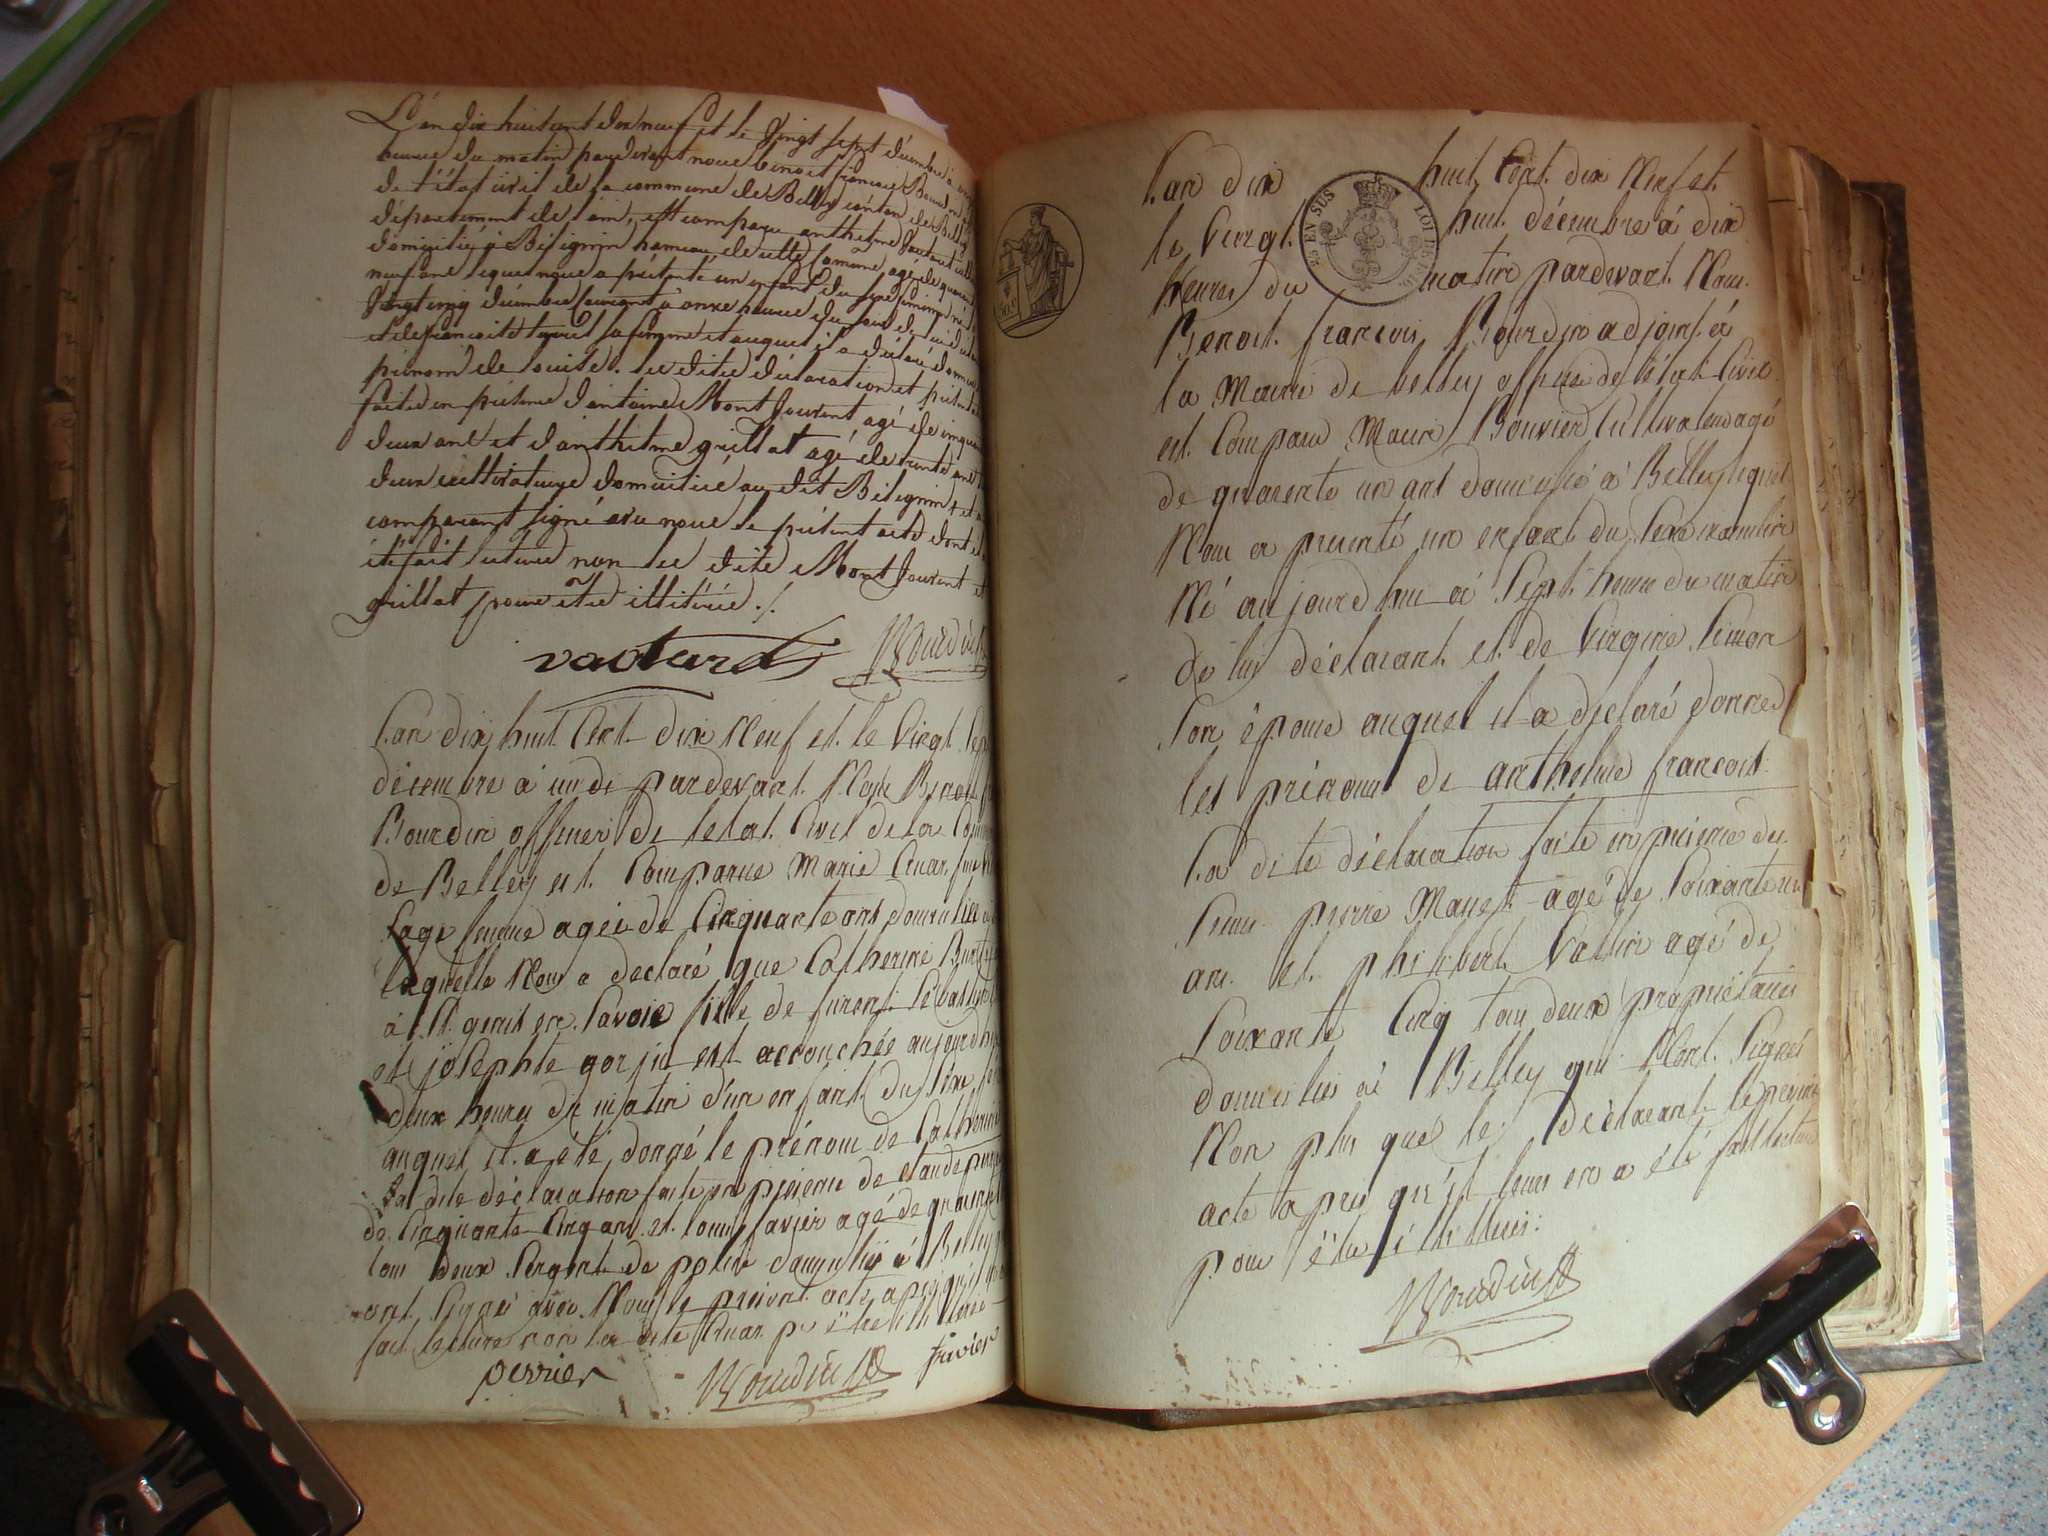 L'an dix huit cent dix neuf et le Vingt sept décembre à
heures du matin pardevant nous benoit françois Bourdin
de l'état civil de la commune de Belley canton de Belley
département de l'ain, est comparu anthelme
domicilié à Bilignin hameau de cette Comune, agé de
neuf ans lequel nous a présenté un enfant du sexe féminin né
Vingt cinq décembre courant à onze heures du soir de lui
et de françoise sa femme et auquel il a déclaré donner
prénom de louise. les dites déclaration et
faite en présence d'antoine Mont Jouvent agé de cinquante
deux ans et d'anthelme grillat agé de trente ans
deux cultivateurs domiciliés au dit Bilignin, et
comparant signé avec nous le présent acte dont
été fait lecture non les dits Mont Jouvent et
grillat pour être illitérés ./.
Bourdin
L'an dix huit Cent dix Neuf et le Vingt Sept
décembre à midi pardevant Nous Benoit
Bourdin officier de l'etat Civil de la Commune
de Belley est Comparue Marie Cruat
Sage femme agée de Cinquante ans domiciliée
laquelle Nous a declaré que Catherine
à St genis en Savoie fille de
et josephte gorju est accouchée aujourd'hui
deux heures du matin d'un enfant du sexe
auquel il a été donné le prénom de Catherine
La dite déclaration faite en présence de claude
de Cinquante Cinq ans et louis favier agé de quarante
tous deux Sergent de police domiciliés à Belley
ont Signés avec Nous le présent acte après qu'il
fait lecture non la dite Cruat pr être illiterée
perrier Bourdin favier
L'an dix huit Cent dix Neuf et
le Vingt huit décembre à dix
heures du matin pardevant Nous
Benoit françois Bourdin adjoint à
la Mairie de belley officier de l'état Civil
est Comparu Maurice Bouvier Cultivateur agé
de quarente un ans domicilié à Belley lequel
Nous a presenté un enfant du Sexe masculin
Né aujourd'hui à Sept heures du matin
de lui déclarant et de Virginie Simon
Son épouse auquel il a déclaré donner
les prénoms de anthelme françois
La dite déclaration faite en présence des
Sieurs pierre agé de Soixante un
ans et philibert Vallin agé de
Soixante Cinq tous deux propriétaires
domiciliés à Belley qui N'ont Signés
Non plus que le Déclarant le présent
acte après qu'il leur en a été fait lecture
pour être illitterés.
Bourdin